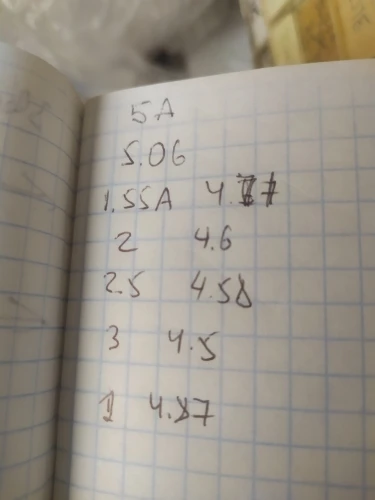 5A
5.06
1.55A 4.77
2 4.6
2.5 4.58
3 4.5
1 4.87